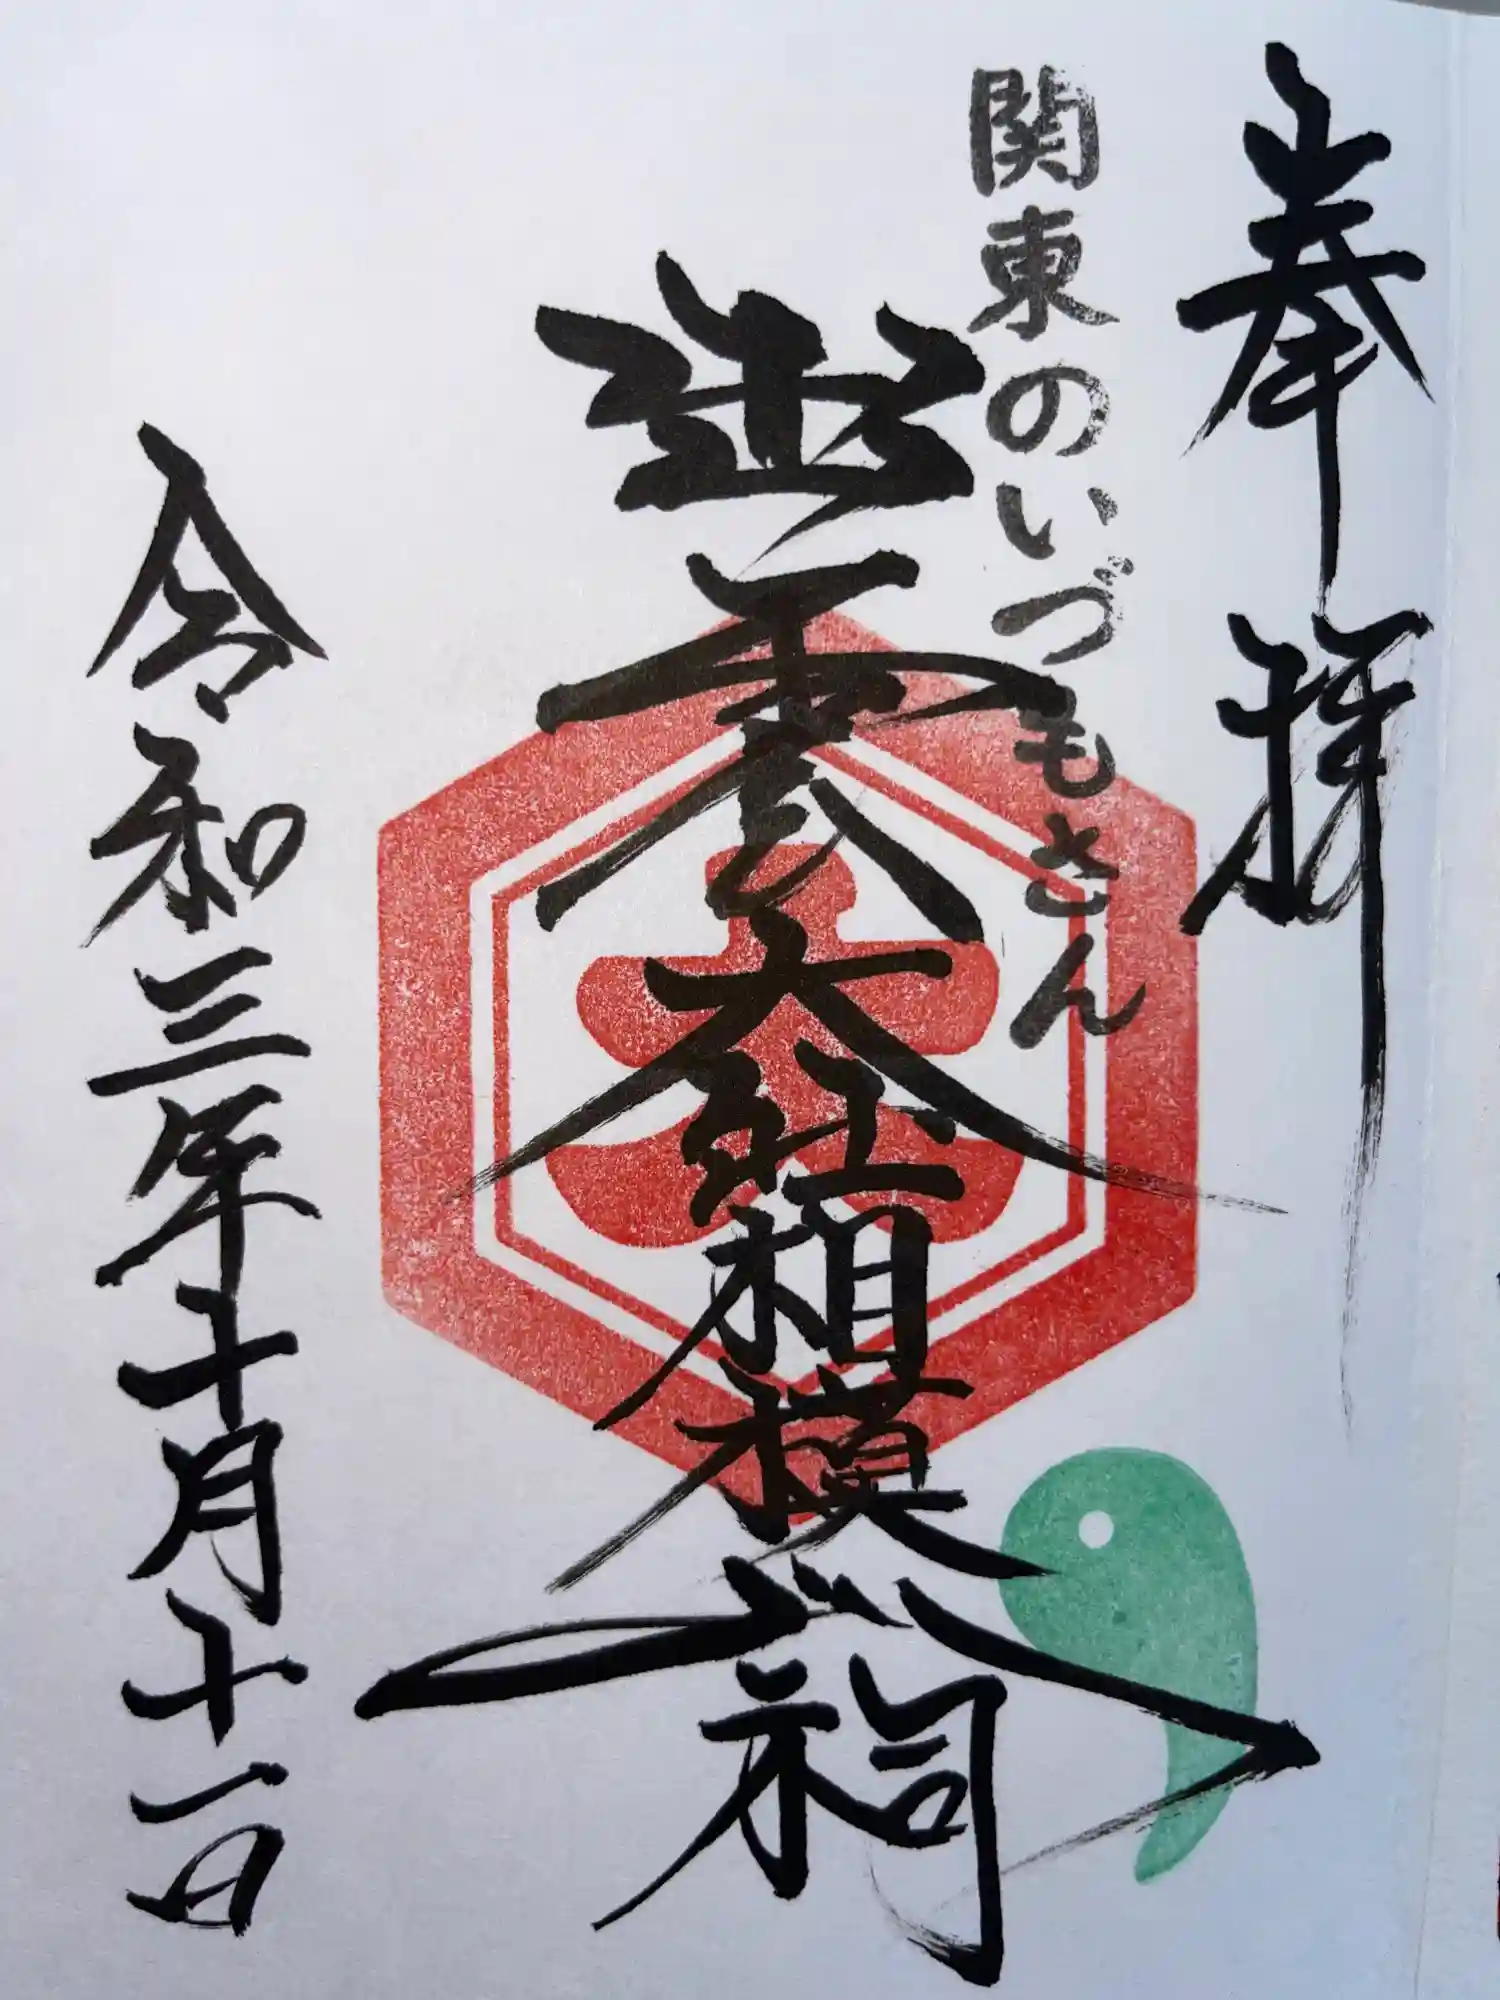 奉拝
関東のいづもさん
出雲大社相模分祠
令和三年十月十一日